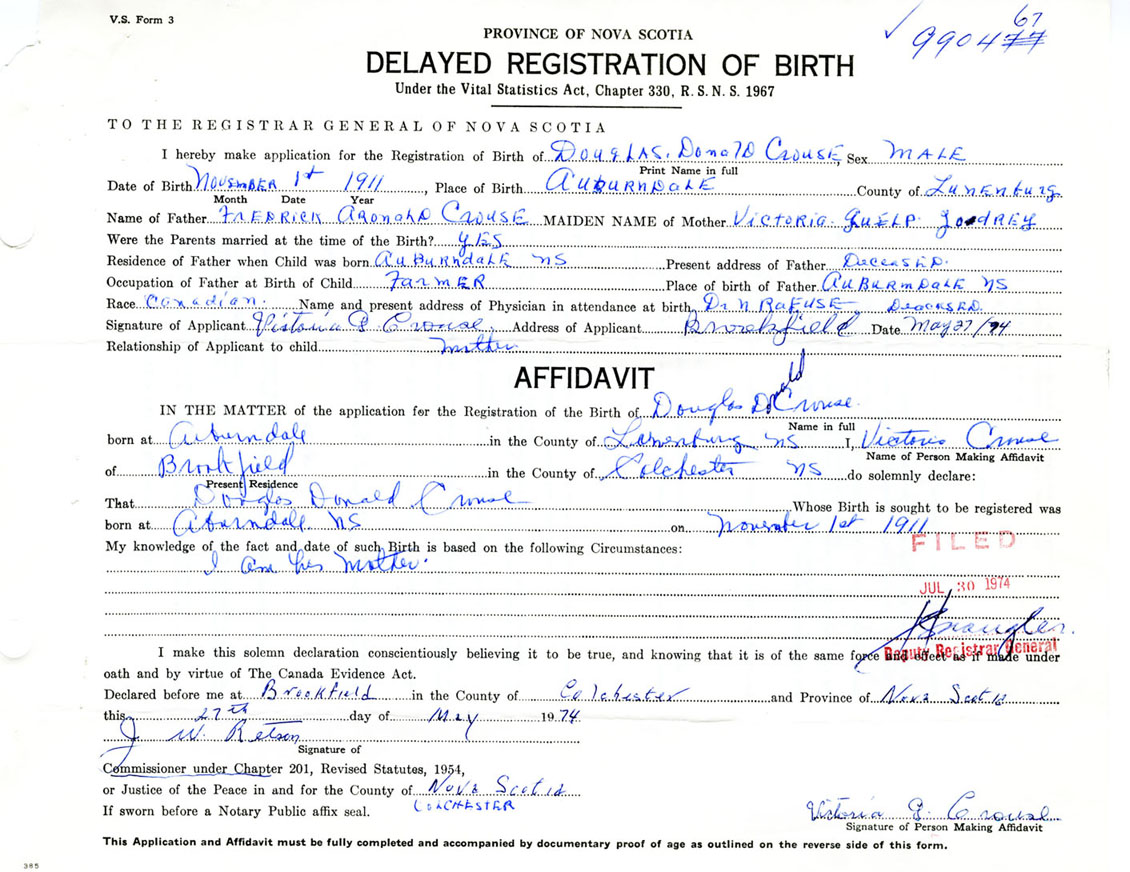 V.S. Form 3
67
990477
PROVINCE OF NOVA SCOTIA
DELAYED REGISTRATION OF BIRTH
Under the Vital Statistics Act, Chapter 330, R. S. N. S. 1967
TO THE REGISTRAR GENERAL OF NOVA SCOTIA
I hereby make application for the Registration of Birth of DOUGLAS. DONALD CROUSE, Sex MALE
Print Name in full
Date of Birth NOVEMBER 1st 1911, Place of Birth AUBURNDALE County of LUNENburg
Month Date Year
Name of Father FREDRICK ARONALD CROUSE MAIDEN NAME of Mother VICTORIA. GUELP JOUDREY
Were the Parents married at the time of the Birth? YES
Residence of Father when Child was born AUBURNDALE NS Present address of Father DECEASED.
Occupation of Father at Birth of Child FARMER Place of birth of Father AUBURNDALE NS
Race Canadian. Name and present address of Physician in attendance at birth Dr. N RAFUSE DECEASED
Signature of Applicant Victoria G Crouse Address of Applicant Brookfield Date May 27/74
Relationship of Applicant to child mother
AFFIDAVIT
IN THE MATTER of the application for the Registration of the Birth of Douglas Donald Crouse.
Name in full
born at Auburndale in the County of Lunenburg NS I, Victoria Crouse
Name of Person Making Affidavit
of Brookfield in the County of Colchester NS do solemnly declare:
Present Residence
That Douglas Donald Crouse Whose Birth is sought to be registered was
born at Aburndale NS on November 1st 1911
My knowledge of the fact and date of such Birth is based on the following Circumstances:
I am his Mother.
FILED
JUL 30 1974
Deputy Registrar General
I make this solemn declaration conscientiously believing it to be true, and knowing that it is of the same force and effect as if made under
oath and by virtue of The Canada Evidence Act.
Declared before me at Brookfield in the County of Colchester and Province of Nova Scotia
this 27th day of May 1974
J W. Retson
Signature of
Commissioner under Chapter 201, Revised Statutes, 1954,
or Justice of the Peace in and for the County of Nova Scotia
COLCHESTER
If sworn before a Notary Public affix seal.
Victoria G. Crouse
Signature of Person Making Affidavit
This Application and Affidavit must be fully completed and accompanied by documentary proof of age as outlined on the reverse side of this form.
385